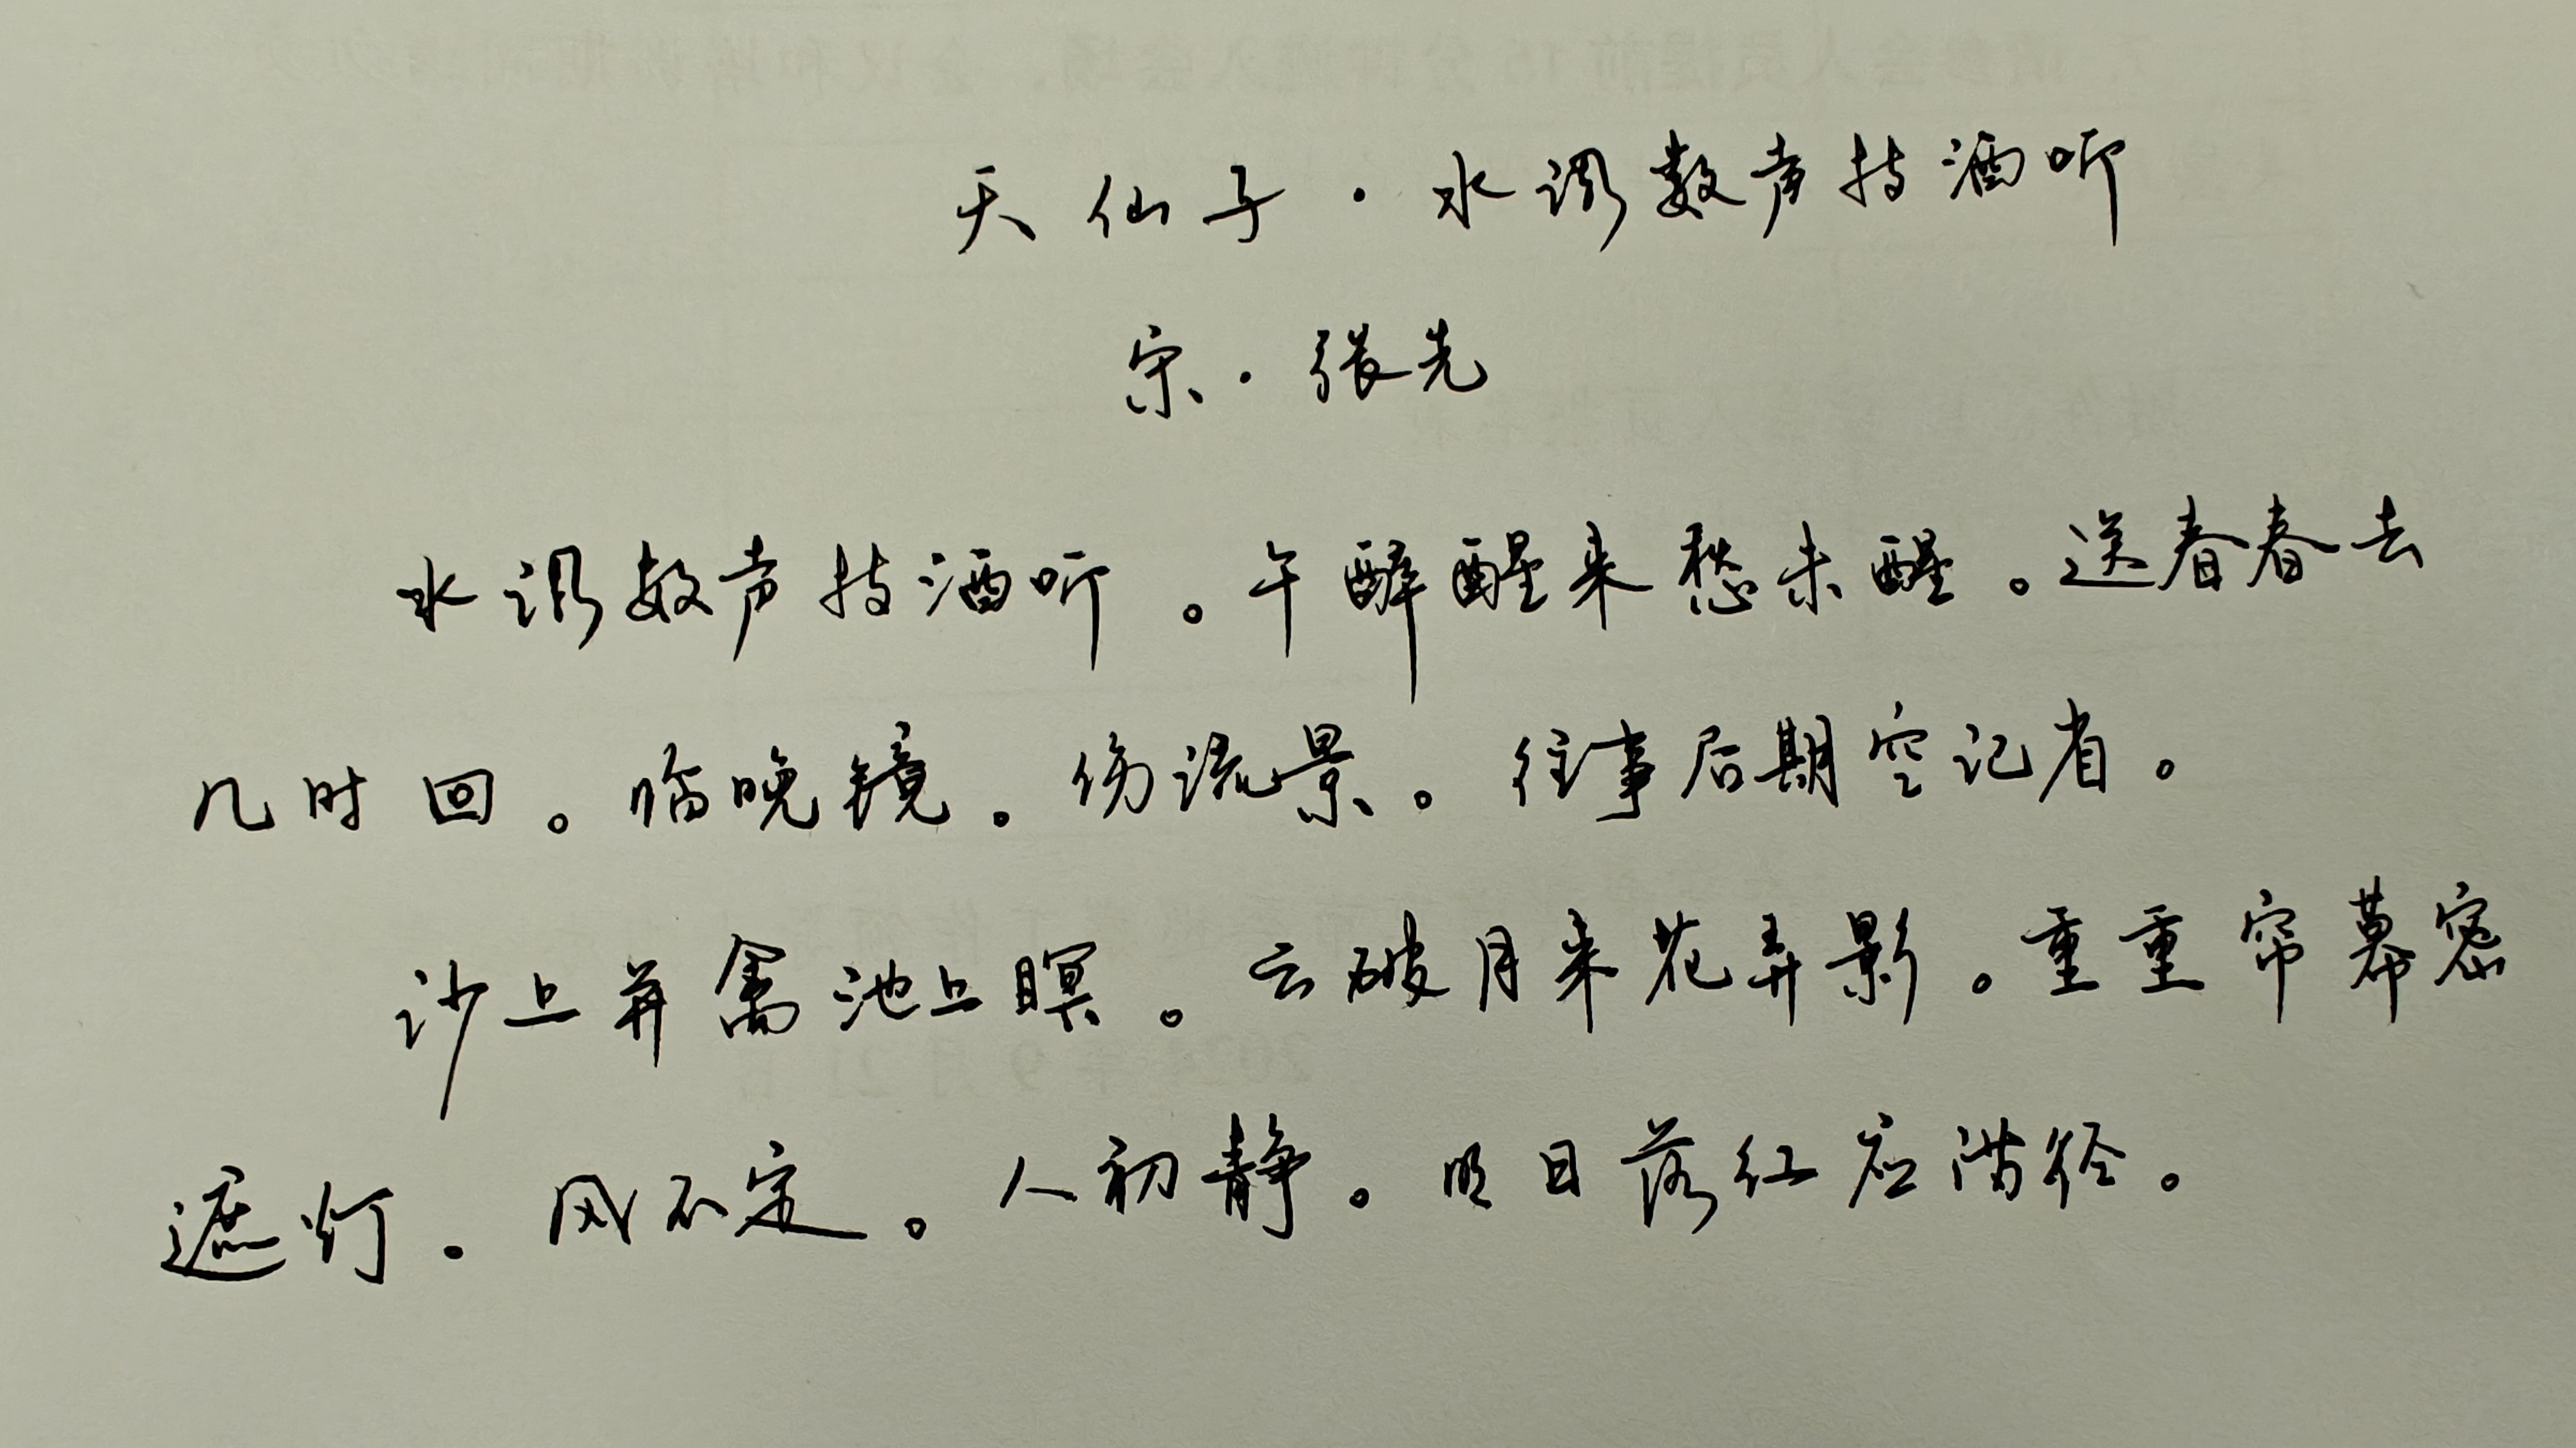 天仙子·水调数声持酒听
宋·张先
水调数声持酒听。午醉醒来愁未醒。送春春去
几时回。临晚镜。伤流景。往事后期空记省。
沙上并禽池上瞑。云破月来花弄影。重重帘幕密
遮灯。风不定。人初静。明日落红应满径。